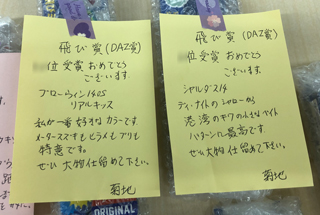 飛び賞(DAZ賞)
位受賞おめでとう
ございます.
ブローウィン140S
リアルキッス
私が一番好きなカラーです.
メータースズキもヒラメもブリも
得意です。
ぜひ大物仕留めて下さい。
菊地
飛び賞(DAZ賞)
位受賞おめでとう
ございます.
シャルダス14
ディ・ナイトのシャローから
港湾のキワの小さなベイト
パターンに最高です.
ぜひ大物仕留めて下さい.
菊地
ORIGINAL